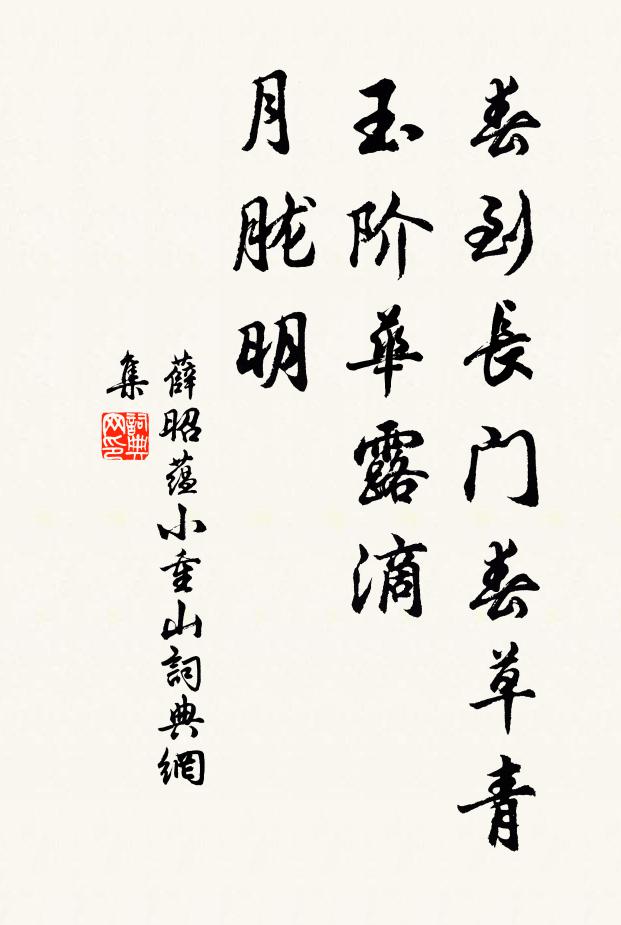 春到長门春草青
玉阶華露滴
月胧明
薛昭蕴小重山詞典網
集
詞典
网印